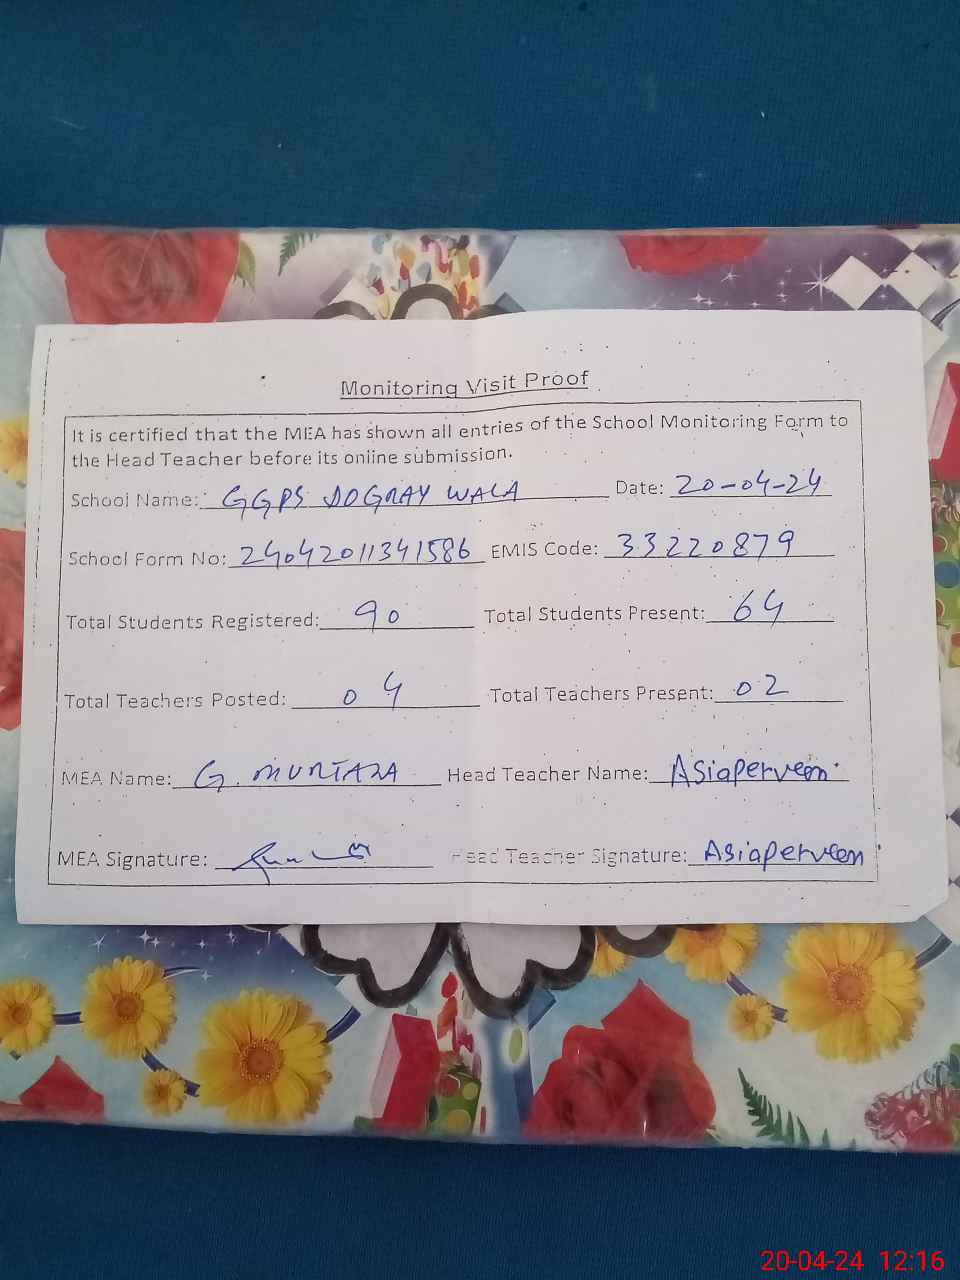 Monitoring Visit Proof
It is certified that the MEA has shown all entries of the School Monitoring Form to
the Head Teacher before its online submission.
School Name: GGPS DOGRAY WALA Date: 20-04-24
School Form No: 24042011341586 EMIS Code: 33220879
Total Students Registered: 90 Total Students Present: 64
Total Teachers Posted: 04 Total Teachers Present: 02
MEA Name: G. MURTAZA Head Teacher Name: Asiaperveen
MEA Signature: Head Teacher Signature: Asiaperveen
20-04-24 12:16